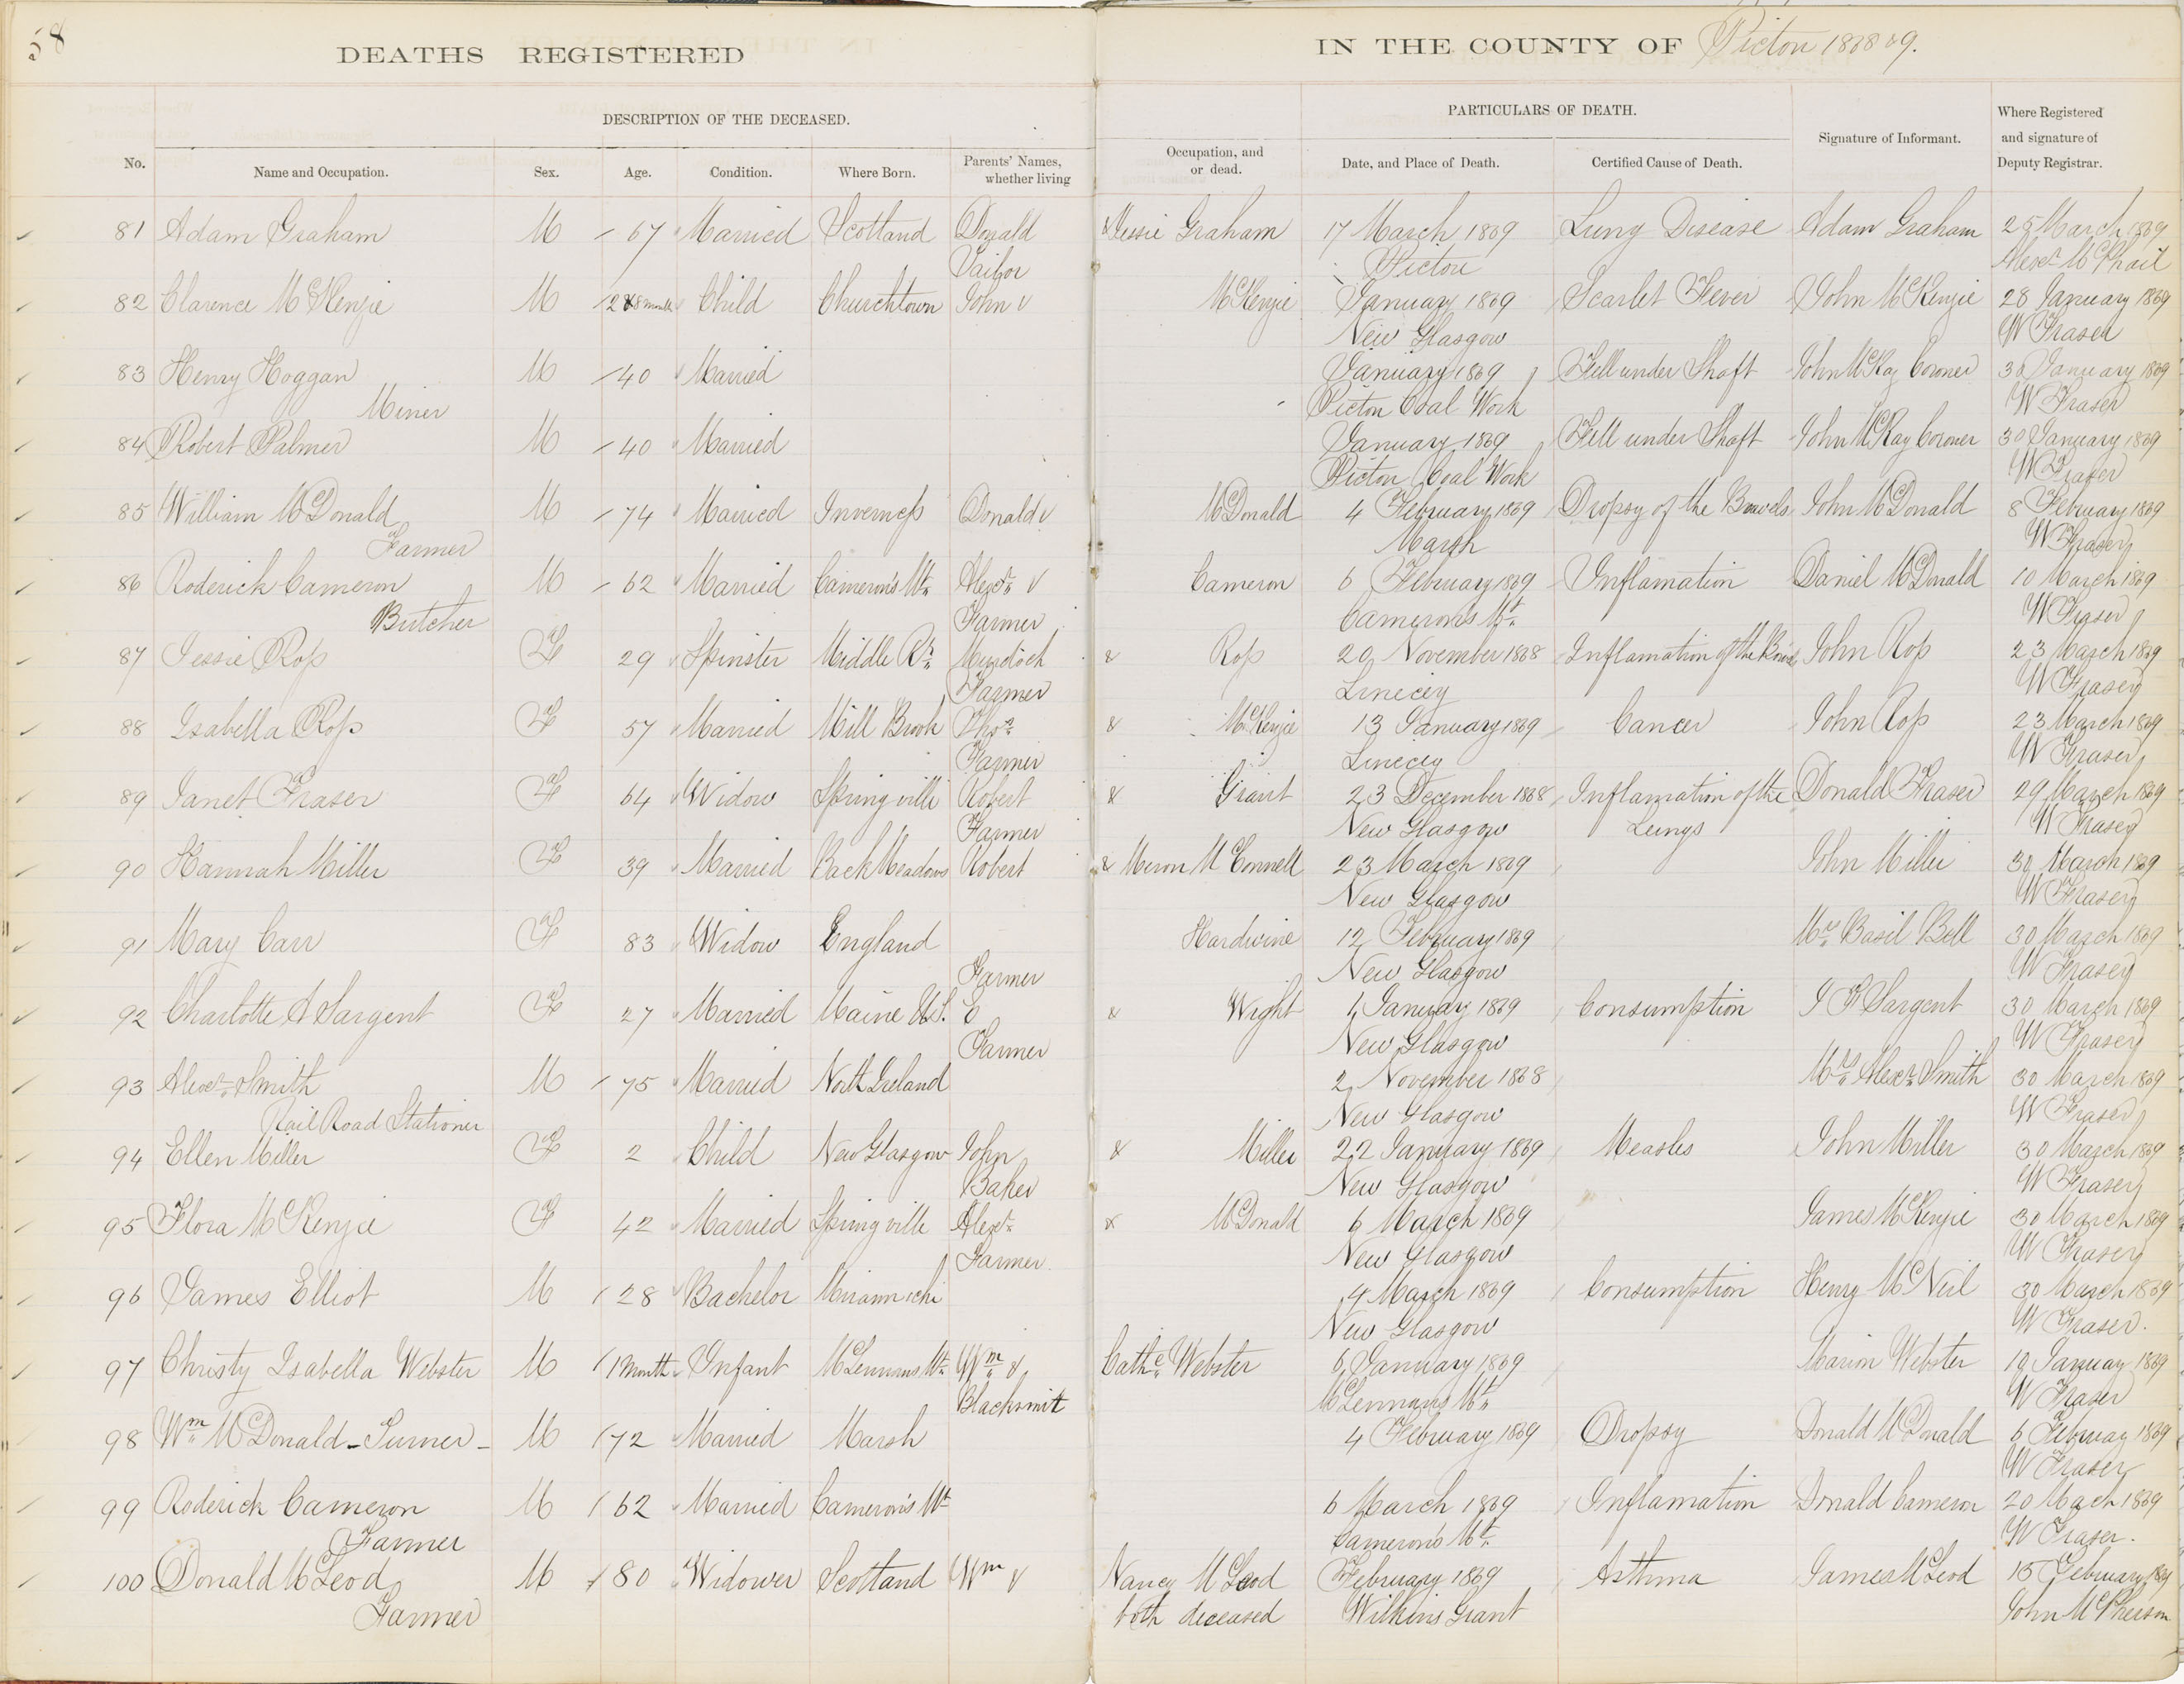 58
DEATHS REGISTERED IN THE COUNTY OF Pictou 1868 & 9.
DESCRIPTION OF THE DECEASED. PARTICULARS OF DEATH.
No. Name and Occupation. Sex. Age. Condition. Where Born. Parents' Names, whether living Occupation, and or dead. Date, and Place of Death. Certified Cause of Death. Signature of Informant. Where Registered and signature of Deputy Registrar.
81 Adam Graham M 67 Married Scotland Donald & Jessie Graham 17 March 1869 Lung Disease Adam Graham 25 March 1869
Tailor Pictou Alexr McPhail
82 Clarence McKenzie M 2 & 8 months Child Churchtown John & McKenzie January 1869 Scarlet Fever John McKenzie 28 January 1869
New Glasgow W Fraser
83 Henry Hoggan M 40 Married January 1869 Fell under Shaft John McKay Coroner 30 January 1869
Miner Pictou Coal Work W Fraser
84 Robert Palmer M 40 Married January 1869 Fell under Shaft John McKay Coroner 30 January 1869
Pictou Coal Work W Fraser
85 William McDonald M 74 Married Inverness Donald & McDonald 4 February 1869 Dropsy of the Bowels John McDonald 8 February 1869
Farmer Marsh W Fraser
86 Roderick Cameron M 62 Married Cameron's Mt. Alexr. & Cameron 6 February 1869 Inflamation Daniel McDonald 10 March 1869
Butcher Farmer Camerons Mt. W Fraser
87 Jessie Ross F 29 Spinster Middle Rr. Murdoch & Ross 20 November 1868 Inflamation of the Bowels John Ross 23 March 1869
Farmer W Fraser
88 Isabella Ross F 57 Married Mill Brook Thos. & McKenzie 13 January 1869 Cancer John Ross 23 March 1869
Farmer W Fraser
89 Janet Fraser F 64 Widow Springville Robert & Grant 23 December 1868 Inflamation of the Donald Fraser 29 March 1869
Farmer New Glasgow Lungs W Fraser
90 Hannah Miller F 39 Married Back Meadows Robert & McConnell 23 March 1869 John Miller 30 March 1869
New Glasgow W Fraser
91 Mary Carr F 83 Widow England Hardwine 12 February 1869 Mrs Basil Bell 30 March 1869
Farmer New Glasgow W Fraser
92 Charlotte A Sargent F 27 Married Maine U.S. E & Wright 1 January 1869 Consumption I F Sargent 30 March 1869
Farmer New Glasgow W Fraser
93 Alexr. Smith M 75 Married North Ireland 2 November 1868 Mrs Alexr. Smith 30 March 1869
Rail Road Stationer New Glasgow W Fraser
94 Ellen Miller F 2 Child New Glasgow John & Miller 22 January 1869 Measles John Miller 30 March 1869
Baker New Glasgow W Fraser
95 Flora McKenzie F 42 Married Springville Alexr. & McDonald 6 March 1869 James McKenzie 30 March 1869
Farmer New Glasgow W Fraser
96 James Elliot M 28 Bachelor Miramichi 4 March 1869 Consumption Henry McNeil 30 March 1869
New Glasgow W Fraser.
97 Christy Isabella Webster M 1 Month Infant McLennans Mt. Wm & Cathe. Webster 6 January 1869 Marion Webster 10 January 1869
Blacksmit McLennans Mt. W Fraser
98 Wm McDonald - Turner - M 72 Married Marsh 4 February 1869 Dropsy Donald McDonald 6 February 1869
W Fraser
99 Roderick Cameron M 62 Married Cameron's Mt 6 March 1869 Inflamation Donald Cameron 20 March 1869
Farmer Camerons Mt. W Fraser.
100 Donald McLeod M 80 Widower Scotland Wm & Nancy McLeod February 1869 Asthma James McLeod 15 February 1869
Farmer both deceased Wilkins Grant John McPherson